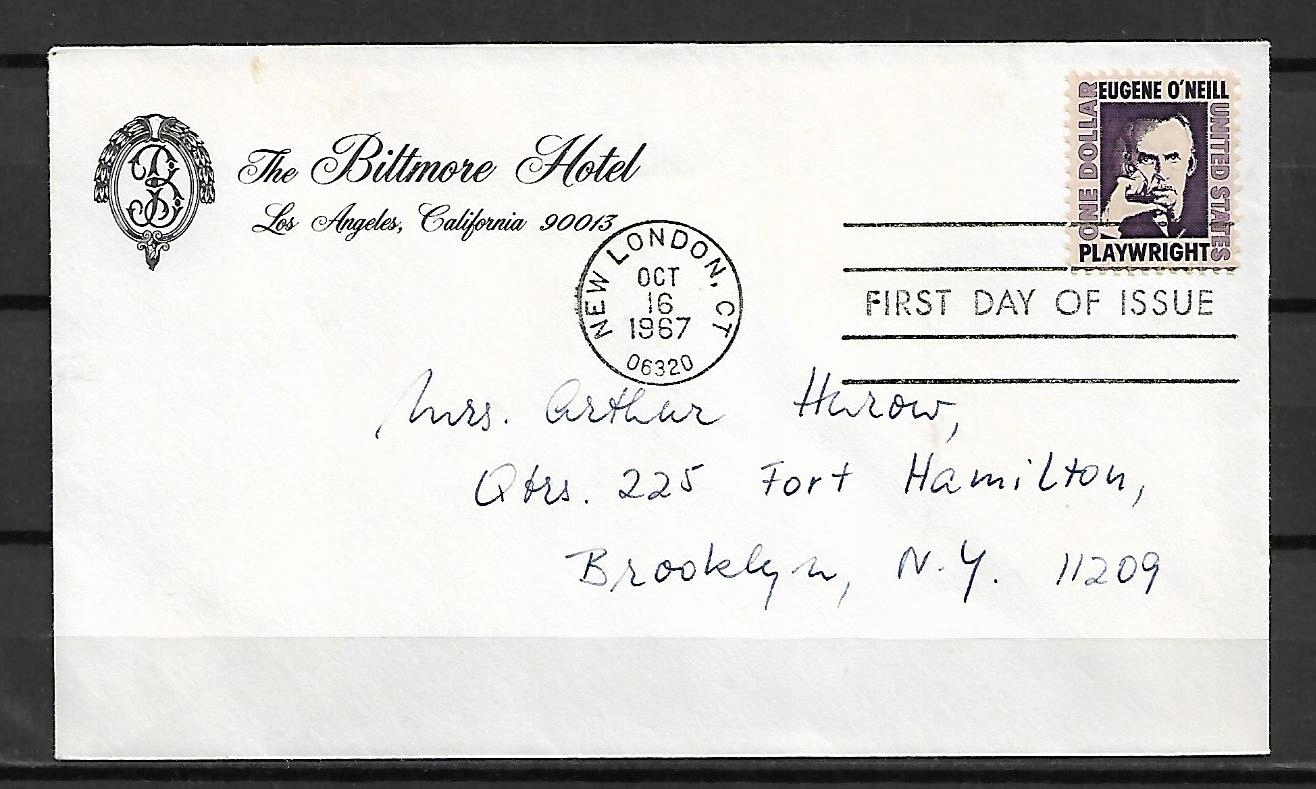 The Biltmore Hotel
Los Angeles, California 90013
EUGENE O'NEILL
ONE DOLLAR
UNITED STATES
PLAYWRIGHT
NEW LONDON, CT
OCT
16
1967
06320
FIRST DAY OF ISSUE
Mrs. Arthur Hurow,
Qtrs. 225 Fort Hamilton,
Brooklyn, N.Y. 11209